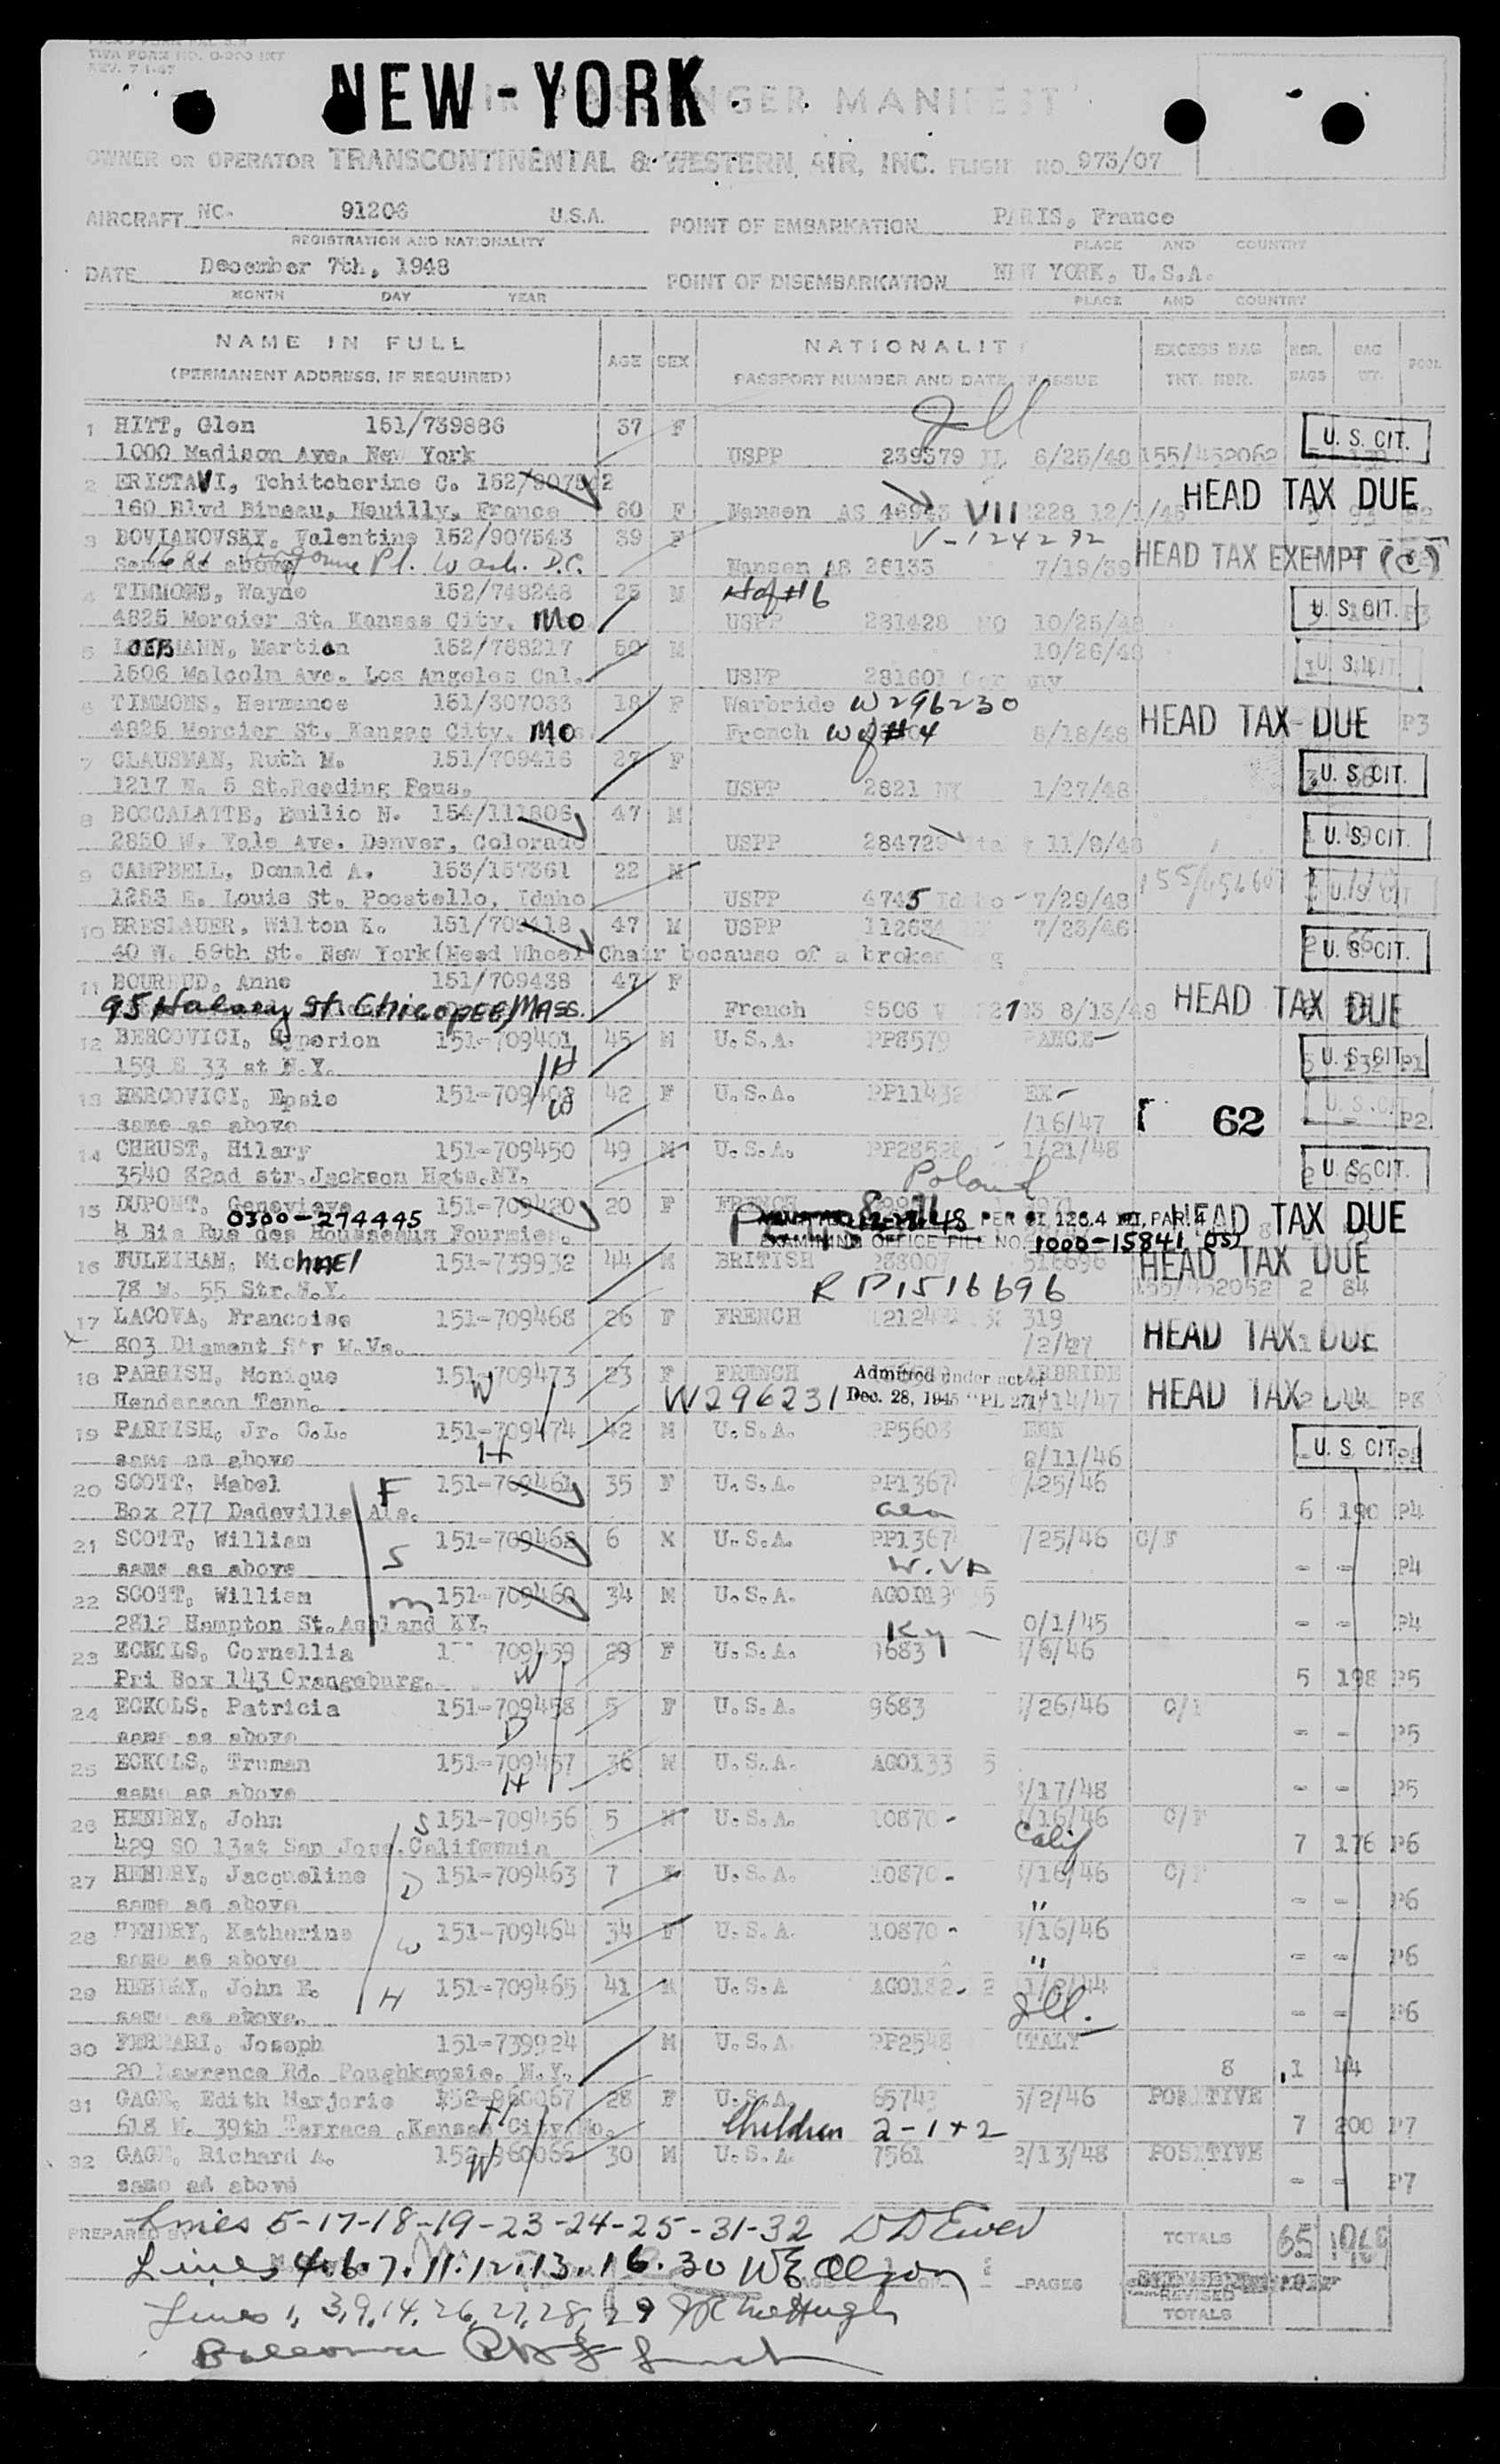 TWA FORM NO. 0-200 INT
REV. 7-1-47
NEW-YORK
AIR PASSENGER MANIFEST
OWNER OR OPERATOR TRANSCONTINENTAL & WESTERN AIR, INC. FLIGHT NO. 973/07
AIRCRAFT NC. 91206 U.S.A. POINT OF EMBARKATION PARIS, France
REGISTRATION AND NATIONALITY PLACE AND COUNTRY
DATE December 7th, 1948 POINT OF DISEMBARKATION NEW YORK, U.S.A.
MONTH DAY YEAR PLACE AND COUNTRY
NAME IN FULL AGE SEX NATIONALITY EXCESS BAG NBR. BAG POOL
(PERMANENT ADDRESS, IF REQUIRED) PASSPORT NUMBER AND DATE OF ISSUE TKT. NBR. BAGS WT.
Ill
1 HITT, Glen 151/739886 37 F U. S. CIT.
1000 Madison Ave. New York USPP 239579 IL 6/25/48 155/452062
2 ERISTAVI, Tchitcherine C. 152/907542 HEAD TAX DUE
160 Blvd Bineau, Neuilly, France 60 F Nansen AS VII
3 BOVIANOVSKY, Valentine 152/907543 39 F V-124292 HEAD TAX EXEMPT (C)
Same as above Pl. Wash. D.C. Nansen AS 26135 7/19/39
4 TIMMONS, Wayne 152/748248 25 M H of #6
4825 Mercier St. Kansas City. Mo USPP 281428 MO 10/25/48 U. S. CIT.
5 LOEBMANN, Martin 152/768217 50 M 10/26/48
1506 Malcolm Ave. Los Angeles Cal. USPP 281601 Germany U. S. CIT.
6 TIMMONS, Hermance 151/307033 18 F Warbride W296230
4825 Mercier St. Kansas City. Mo French W of #4 8/18/48 HEAD TAX DUE P3
7 CLAUSMAN, Ruth M. 151/709416 27 F
1217 N. 5 St. Reeding Penn. USPP 2821 NY 1/27/48 U. S. CIT.
8 BOCCALATTE, Emilio N. 154/111806 47 M
2850 W. Yale Ave. Denver, Colorado USPP 284729 11/9/48 U. S. CIT.
9 CAMPBELL, Donald A. 153/157361 22 M
1253 E. Louis St. Pocatello, Idaho USPP 4745 Idaho - 7/29/48 U. S. CIT.
10 BRESLAUER, Wilton K. 151/709418 47 M USPP 112634 7/23/46
40 W. 59th St. New York (Need Wheel Chair because of a broken leg U. S. CIT.
11 BOURHUD, Anne 151/709438 47 F
95 Halsey St. Chicopee, MASS. French 9506 8/13/48 HEAD TAX DUE
12 BERCOVICI, Hyperion 151-709401 45 M U.S.A. PP8579 FRANCE
159 E 33 st N.Y. H U. S. CIT. P1
13 HERCOVICI, Epsie 151-709402 42 F U.S.A. PP11432 U. S. CIT.
same as above W /16/47 62 P2
14 CHRUST, Hilary 151-709450 49 M U.S.A. PP28528 1/21/48
3540 82nd str. Jackson Hgts. NY. Poland U. S. CIT.
15 DUPONT, Genevieve 151-709420 20 F FRENCH HEAD TAX DUE
0300-274445
8 Bis Rue des Rousseaux Fourmies. PER OI 128.4 PAR. 4
EXAMINING OFFICE FILE NO. 1000-15841
16 FULEIHAN, Michael 151-739932 44 M BRITISH HEAD TAX DUE
78 W. 55 Str. N.Y. R P1516696 155/452052 2 84
17 LACOVA, Francoise 151-709468 26 F FRENCH 319
803 Diament Str W.Va. HEAD TAX DUE
18 PARRISH, Monique 151-709473 23 F FRENCH Admitted under act of WARBRIDE
Henderson Tenn. W W296231 Dec. 28, 1945 "PL 271" 14/47 HEAD TAX DUE P8
19 PARRISH, Jr. C.L. 151-709474 42 M U.S.A. PP5603 TENN
same as above H 8/11/46 U. S. CIT.
20 SCOTT, Mabel F 151-709461 35 F U.S.A. PP1367 /25/46
Box 277 Dadeville Ala. Ala 6 190 P4
21 SCOTT, William 151-709462 6 M U.S.A. PP1367 /25/46 C/F
same as above S W.VA - - P4
22 SCOTT, William M 151-709460 34 M U.S.A.
2812 Hampton St. Ashland KY. Ky 0/1/45 - - P4
23 ECKOLS, Cornellia 709459 29 F U.S.A. 9683 /6/46
Pri Box 143 Orangeburg. W 5 198 P5
24 ECKOLS, Patricia 151-709458 5 F U.S.A. 9683 /26/46 C/F
same as above D - - P5
25 ECKOLS, Truman 151-709457 36 M U.S.A. AGO133 5
same as above H /17/48 - - P5
26 HENDRY, John S 151-709456 5 M U.S.A. 10870 - /16/46 C/F
429 SO 13st San Jose. California Calif 7 176 P6
27 HENDRY, Jacqueline D 151-709463 7 F U.S.A. 10870 - /16/46 C/F
same as above " - - P6
28 HENDRY, Katherine W 151-709464 34 F U.S.A. 10870 - /16/46
same as above " - - P6
29 HENDRY, John P. H 151-709465 41 M U.S.A
same as above. Ill. - - P6
30 FERRARI, Joseph 151-739924 M U.S.A PP2548 ITALY
20 Lawrence Rd. Poughkepsie. N.Y. 8 1 44
31 GAGE, Edith Marjorie 152-960067 28 F U.S.A 65743 5/2/46 POSITIVE
618 W. 39th Terrace .Kansas City, Mo. H Children 2-1+2 7 200 P7
32 GAGE, Richard A. 152-960066 30 M U.S.A. 7561 2/13/48 POSITIVE
same ad above W - - P7
Lines 5-17-18-19-23-24-25-31-32 D D Ewer
PREPARED BY TOTALS 65
Lines 4.6.7.11.12.13.16.30 WE Olson
PAGES
REVISED
TOTALS
Lines 1, 3, 9, 14, 26, 27, 28, 29 McHugh
Balance